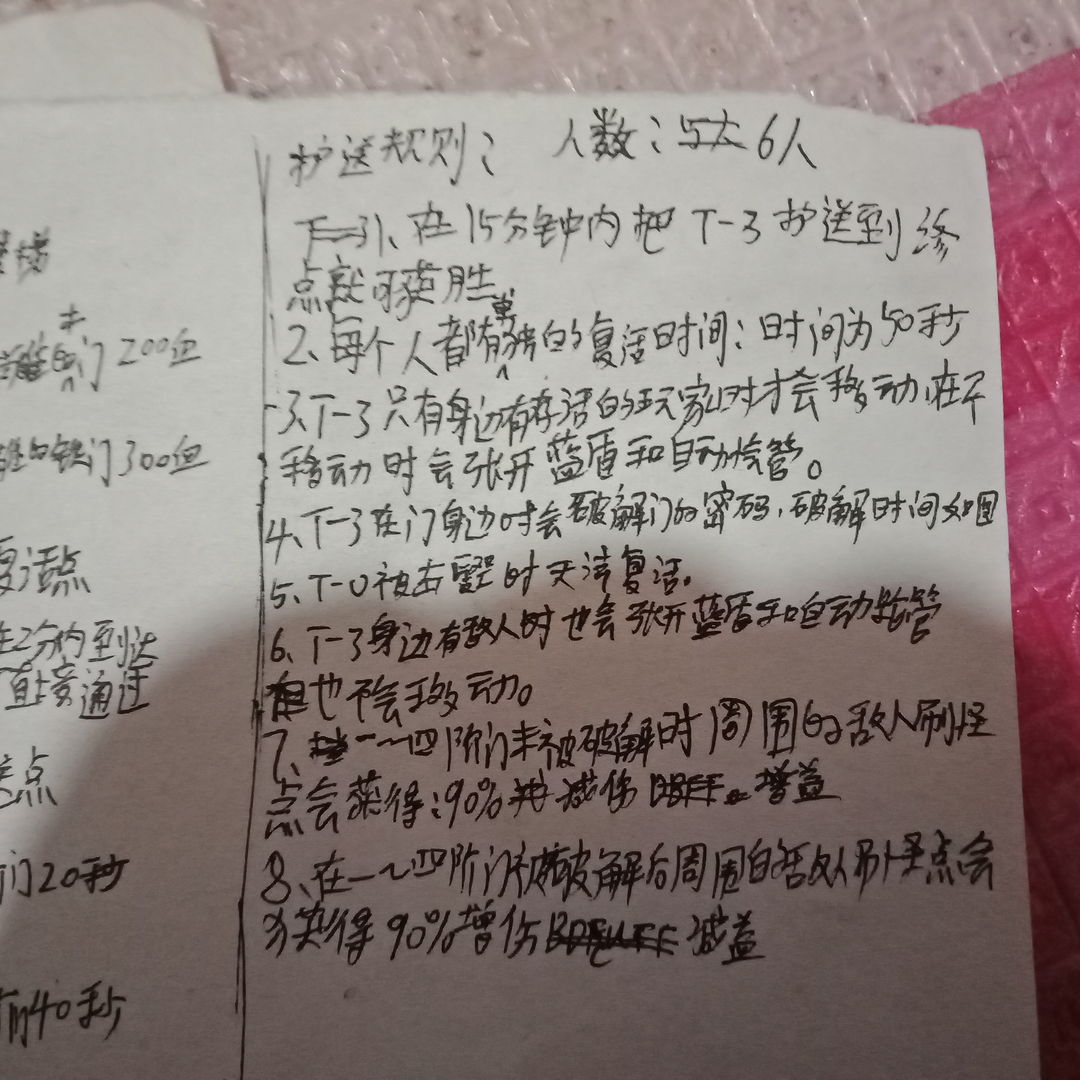 护送规则: 人数:6人
1、在15分钟内把T-3护送到终
点就可获胜
2、每个人都有单独的复活时间:时间为50秒
3、T-3只有身边有存活的玩家时才会移动,在不
移动时会张开蓝盾和自动炮管。
4、T-3在门身边时会破解门的密码,破解时间如图
5、T-0被击毁时无法复活。
6、T-3身边有敌人时也会张开蓝盾和自动炮管
但也不会移动。
7、一~四阶门未被破解时周围的敌人刷怪
点会获得:90%减伤增益
8、在一~四阶门被破解后周围的敌人刷怪点会
获得90%增伤减益
门200血
铁门300血
复活点
在2分内到达
直接通过
点
门20秒
门40秒